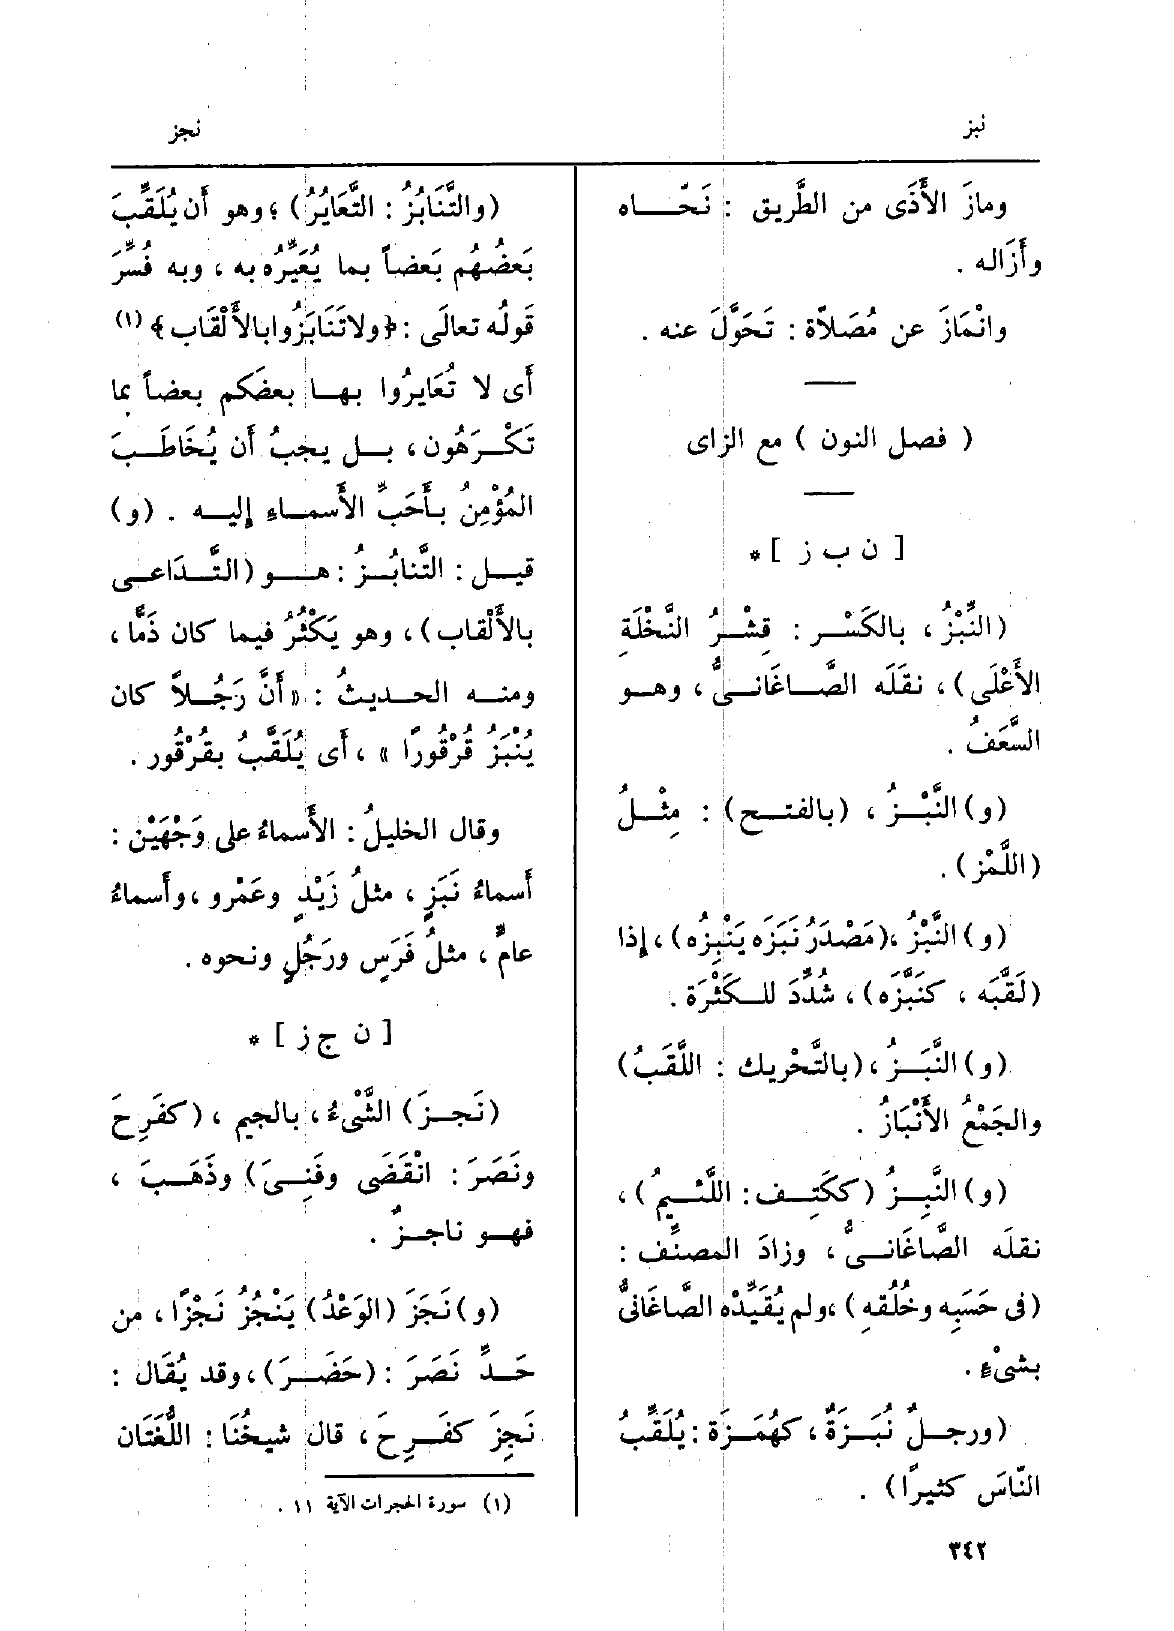 نبز
نجز
ومازَ الأَذَى من الطَّريق : نَحّاه
وأَزاله .
وانْمَازَ عن مُصَلاّة : تَحَوَّلَ عنه .
( فصل النون ) مع الزاى
[ ن ب ز ] *
(النِّبْزُ ، بالكَسْر : قِشْرُ النَّخْلَةِ
الأَعْلَى) ، نقَلَه الصَّاغَانىُّ ، وهو
السَّعَفُ .
(و) النَّبْزُ ، (بالفتح) : مِثْلُ
(اللَّمْز) .
(و) النَّبْزُ ،(مَصْدَرُ نَبَزَه يَنْبِزُه) ، إذا
(لَقَّبَه ، كنَبَّزَه) ، شُدِّدَ للكَثْرَة .
(و) النَّبَزُ ، (بالتَّحْرِيك : اللَّقَبُ)
والجَمْعُ الأَنْبَازُ .
(و) النَّبِزُ (ككَتِف : اللَّئيمُ) ،
نقلَه الصَّاغَانىُّ ، وزادَ المصنِّف :
(فى حَسَبِه وخُلُقِه ) ،ولم يُقَيِّدْه الصَّاغَانىُّ
بشىْءٍ .
(ورجلٌ نُبَزَةٌ ، كهُمَزَة : يُلَقِّبُ
النّاسَ كثيرًا) .
(والتَّنَابُزُ : التَّعَايُرُ) ؛ وهو أَن يُلَقِّبَ
بَعضُهُم بَعضاً بما يُعَيِّرُه به ، وبه فُسِّرَ
قَولُه تعالَى : ﴿ولاتَنَابَزُوابالأَلْقَاب﴾ (١)
أَى لا تُعَايرُوا بها بعضَكم بعضاً بما
تَكْرَهُون ، بل يجبُ أَن يُخَاطَبَ
المُؤْمِنُ بأَحَبِّ الأَسماءِ إليه . (و)
قيل : التَّنابُزُ : هو (التَّداعى
بالأَلْقاب) ، وهو يَكْثُرُ فيما كان ذَمًّا ،
ومنه الحديثُ : « أَنَّ رَجُلاً كان
يُنْبَزُ قُرْقُورًا » ، أَى يُلَقَّبُ بقُرْقُور .
وقال الخليلُ : الأَسماءُ على وَجْهَيْن :
أَسماءُ نَبَزٍ ، مثلُ زَيْدٍ وعَمْرو ، وأَسماءُ
عامٌّ ، مثلُ فَرَسٍ ورَجُلٍ ونحوه .
[ ن ج ز ] *
(نَجزَ) الشَّىْءُ ، بالجيم ، (كفَرِحَ
ونَصَرَ : انْقَضَى وفَنِىَ) وذَهَبَ ،
فهو ناجزٌ .
(و) نَجَزَ (الوَعْدُ) يَنْجُزُ نَجْزًا ، من
حَدِّ نَصَرَ : (حَضَرَ) ، وقد يُقَال :
نَجِزَ كفَرِحَ ، قال شيخُنَا : اللُّغَتَان
(١) سورة الحجرات الآية ١١ .
٣٤٢